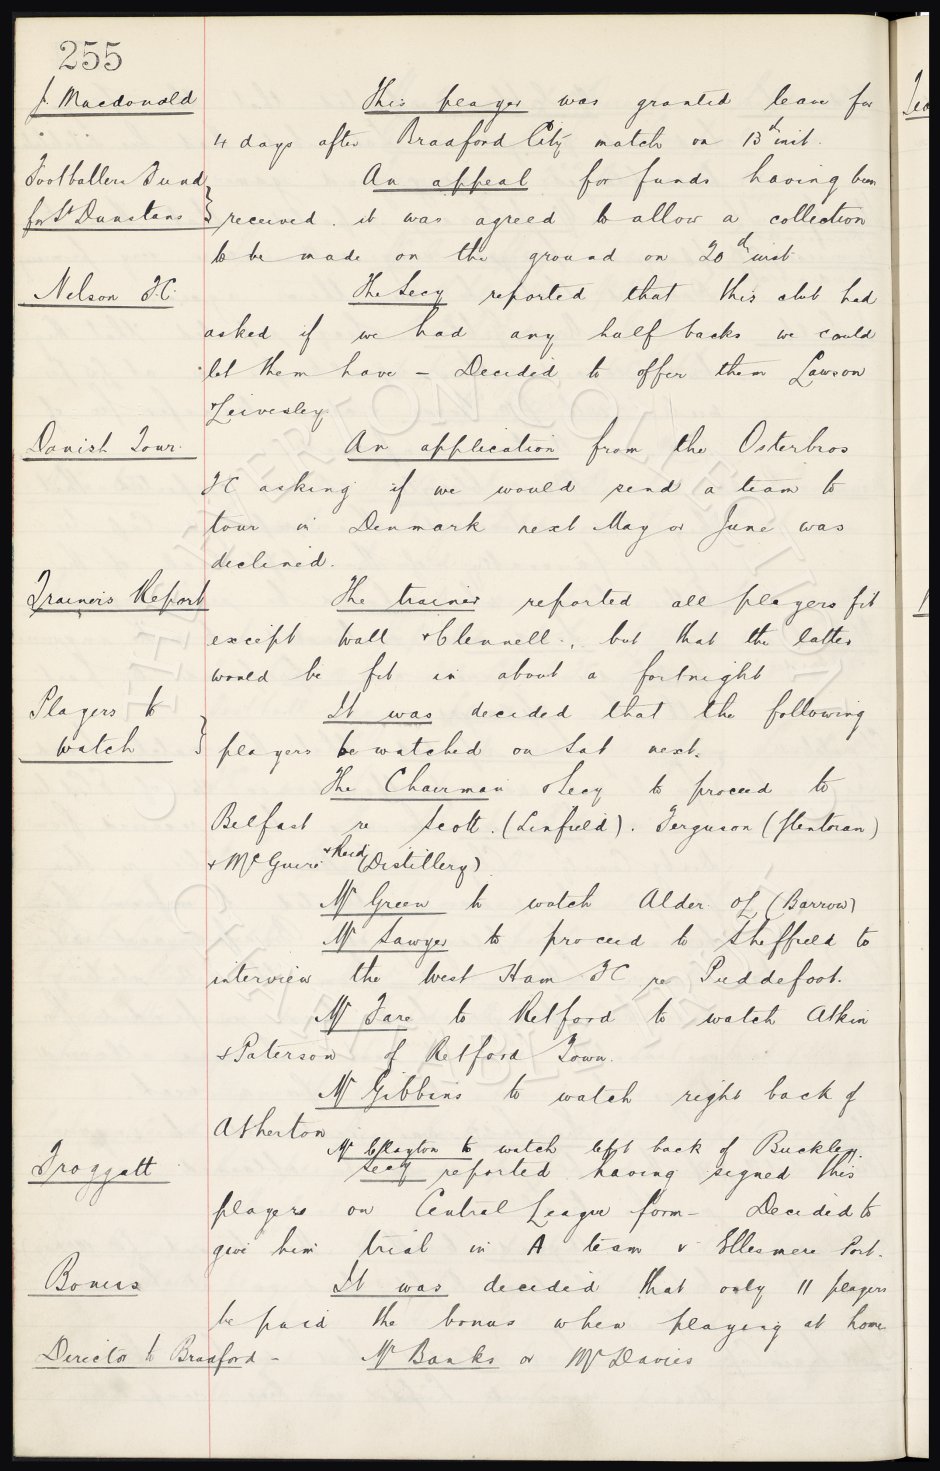 255
J. Macdonald This player was granted leave for
4 days after Bradford City match on 13th inst.
Footballers Fund An appeal for funds having been
for St Dunstans } received. it was agreed to allow a collection
to be made on the ground on 20th inst
Nelson F.C. The Secy reported that this club had
asked if we had any half backs we could
let them have - Decided to offer them Lawson
+ Leivesley
Danish Tour. An application from the Osterbros
FC asking if we would send a team to
tour in Denmark next May or June was
declined.
Trainers Report The trainer reported all players fit
except Wall + Clennell, but that the latter
would be fit in about a fortnight
Players to It was decided that the following
watch } players be watched on Sat next.
The Chairman + Secy to proceed to
Belfast re Scott. (Linfield). Ferguson (Glentoran)
+ McGuire + Reid (Distillery)
Mr Green to watch Alder OL (Barrow)
Mr Sawyer to proceed to Sheffield to
interview the West Ham FC re Puddefoot.
Mr Fare to Retford to watch Atkin
+ Paterson of Retford Town.
Mr Gibbins to watch right back of
Atherton
Mr Clayton to watch left back of Buckley.
Froggatt Secty reported having signed this
players on Central League form - Decided to
give him trial in A team v Ellesmere Port.
Bonus It was decided that only 11 players
be paid the bonus when playing at home
Director to Bradford - Mr Banks or Mr Davies